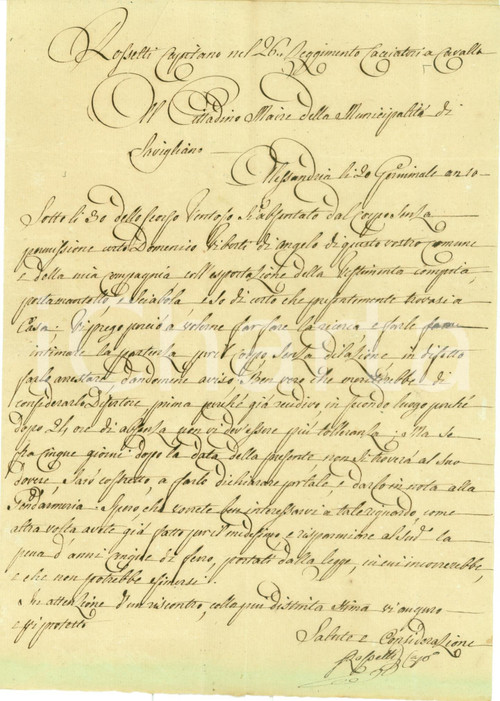 Rossetti Capitano nel 26.o Reggimento Cacciatori a Cavallo
Al Cittadino Maire della Municipalità di
Savigliano
Alessandria li 20 Germinale an. 10
Sotto li 30 dello scorso Ventoso s'è absentato dal corpo senza
permissione certo Domenico Riberti di Angelo di questo vostro comune
e della mia compagnia coll'esportazione della vestimenta completa,
portamantello, e sciabola e so di certo che presentemente trovasi a
Casa. Vi prego perciò a volerne far fare la ricerca e farle
intimare la partenza pel corpo senza dilazione in difetto
farlo arrestare dandomene avviso. Ben vero che dovrebbe di
considerarlo Disertore prima perché già recidivo in secondo luogo perché
dopo 24 ore di absenza non vi dev'essere più tolleranza: Ma se
fra cinque giorni dopo la data della presente non si troverà al suo
dovere sarò costretto, a farlo dichiarare per tale, e darlo in nota alla
Gendarmeria. Spero che vorrete ben interessarvi a tale riguardo, come
altra volta avete già fatto per il medesimo, e risparmiare al Sud.o la
pena d'anni cinque di ferro, portati dalla legge, in cui incorrerebbe,
e che non potrebbe esimersi.
In attenzione d'un riscontro, colla più distinta stima vi auguro
e vi protesto
Salute e Considerazione
Rossetti Cap.o